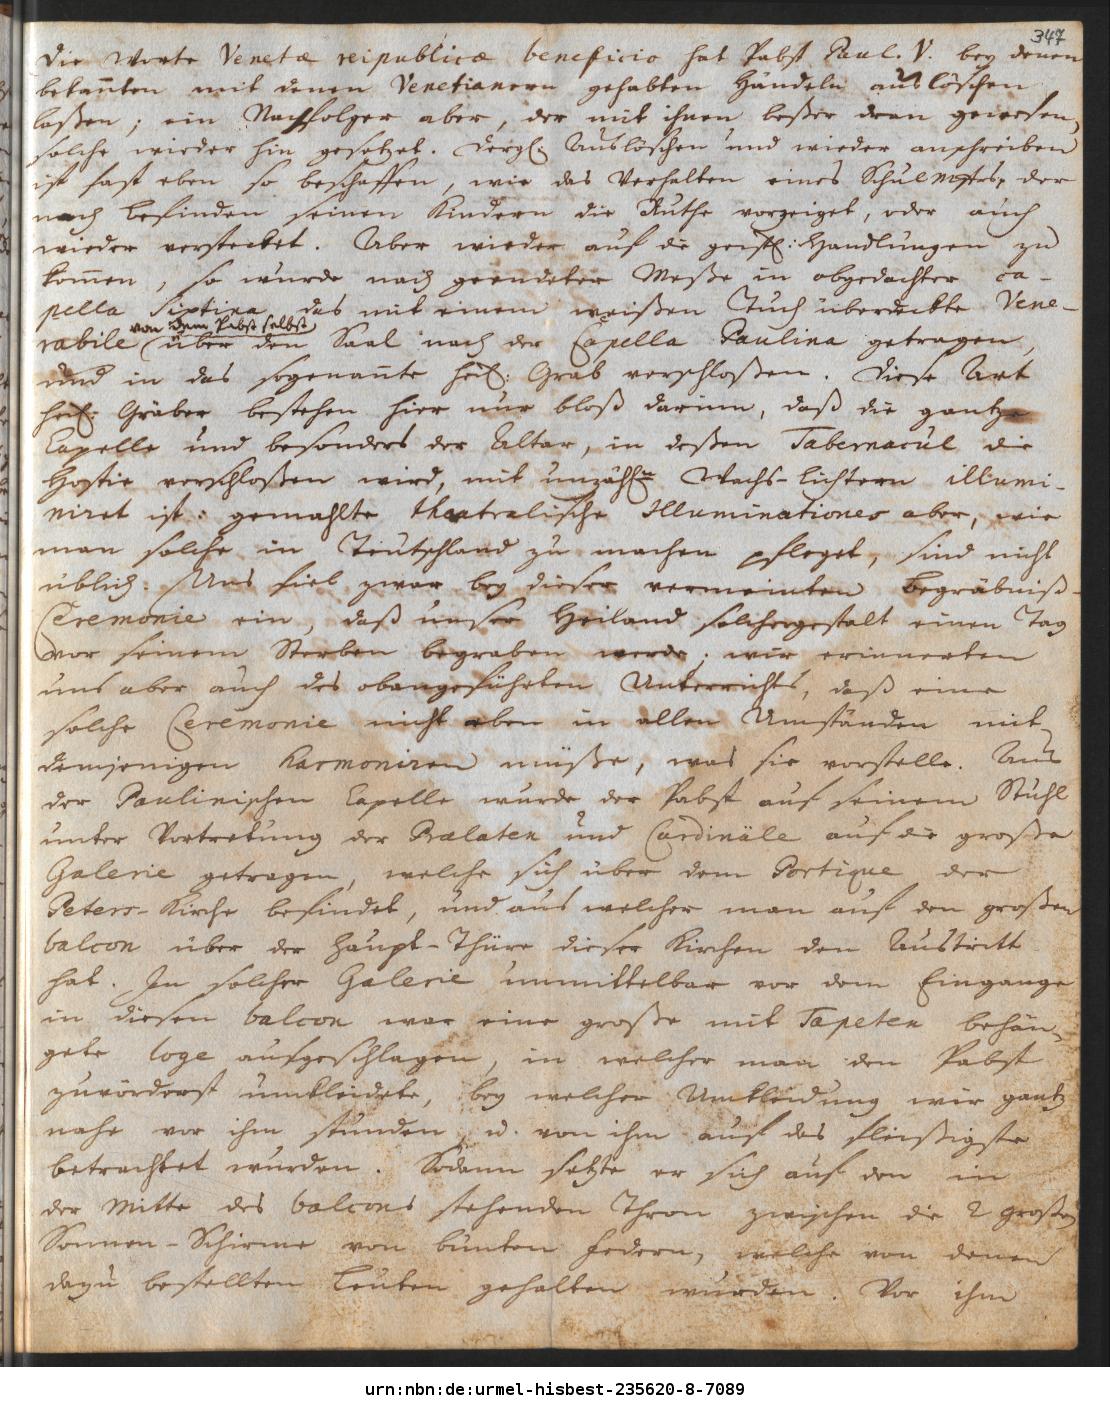 347
Die Worte Venetæ reipublicæ beneficio hat Pabst Paul. V. bey denen
bekan̄ten mit denen Venetianern gehabten Händeln auslöschen
laßen; ein Nachfolger aber, der mit ihnen beßer dran gewesen,
solche wieder hin gesetzet. Dergl: Auslöschen und wieder anschreiben
ist fast eben so beschaffen, wie das Verhalten eines Schulmstrs, der
nach befinden seinen Kindern die Ruthe vorzeiget, oder auch
wieder verstecket. Aber wieder auf die geistl: Handlungen zu
kom̄en, so wurde nach geendeter Meße in obgedachter ca-
pella Sixtina das mit einem weißen Tuch überdeckte Vene-
von dem Pabst selbst
rabile über den Saal nach der Capella Paulina getragen,
und in das sogenan̄te heil: Grab verschloßen. Diese Art
heil: Gräber bestehen hier nur bloß darinn, daß die gantze
Capelle und besonders der Altar, in deßen Tabernacul die
Hostie verschloßen wird, mit unzähl: Wachs-lichtern illumi-
niret ist: gemahlte theatralische Illuminationes aber, wie
man solche in Teutschland zu machen pfleget, sind nicht
üblich. Uns fiel zwar bey dieser vermeinten Begräbniß-
Ceremonie ein, daß unser Heiland solchergestalt einen Tag
vor seinem Sterben begraben werde; wir erinnerten
uns aber auch des obangeführten Unterrichts, daß eine
solche Ceremonie nicht eben in allen Umständen mit
demjenigen harmoniren müße, was sie vorstelle. Aus
der Paulinischen Capelle wurde der Pabst auf seinem Stuhl
unter Vortretung der Prælaten und Cardinäle auf die große
Galerie getragen, welche sich über dem Portique der
Peters-Kirche befindet, und aus welcher man auf den großen
balcon über der Haupt-Thüre dieser Kirchen den Austritt
hat. In solcher Galerie unmittelbar vor dem Eingange
in diesen balcon war eine große mit Tapeten behän-
gete loge aufgeschlagen, in welcher man den Pabst
zuvörderst umkleidete, bey welcher Umkleidung wir gantz
nahe vor ihm stunden u. von ihm auf das fleißigste
betrachtet wurden. Sodann setzte er sich auf den in
der Mitte des balcons stehenden Thron zwischen die 2 großen
Sonnen-Schirme von bunten Federn, welche von denen
dazu bestellten Leuten gehalten wurden. Vor ihm
urn:nbn:de:urmel-hisbest-235620-8-7089